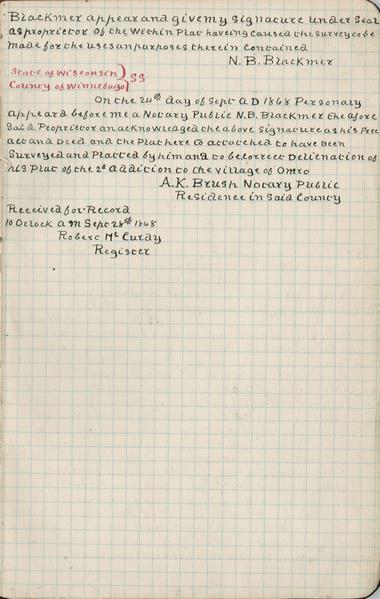 Blackmer appear and give my signature under Seal
as proprietor of the Within Plat having Caused the Survey to be
made for the uses an purposes therein Contained
N. B. Blackmer
State of Wisconsin
County of Winnebago } SS
On the 24th day of Sept A D 1868 Personary
appeard before me a Notary Public N. B. Blackmer the afore
said Proprietor an acknowledged the above signature as his Free
act and Deed and the Plat here to attatched to have been
Surveyed and Platted by him and to be correct Delienation of
his Plat of the 2d addition to the village of Omro
A. K. Brush Notary Public
Residence in Said County
Received for Record
10 Oclock a m Sept 28th 1868
Robert Mc Curdy
Register